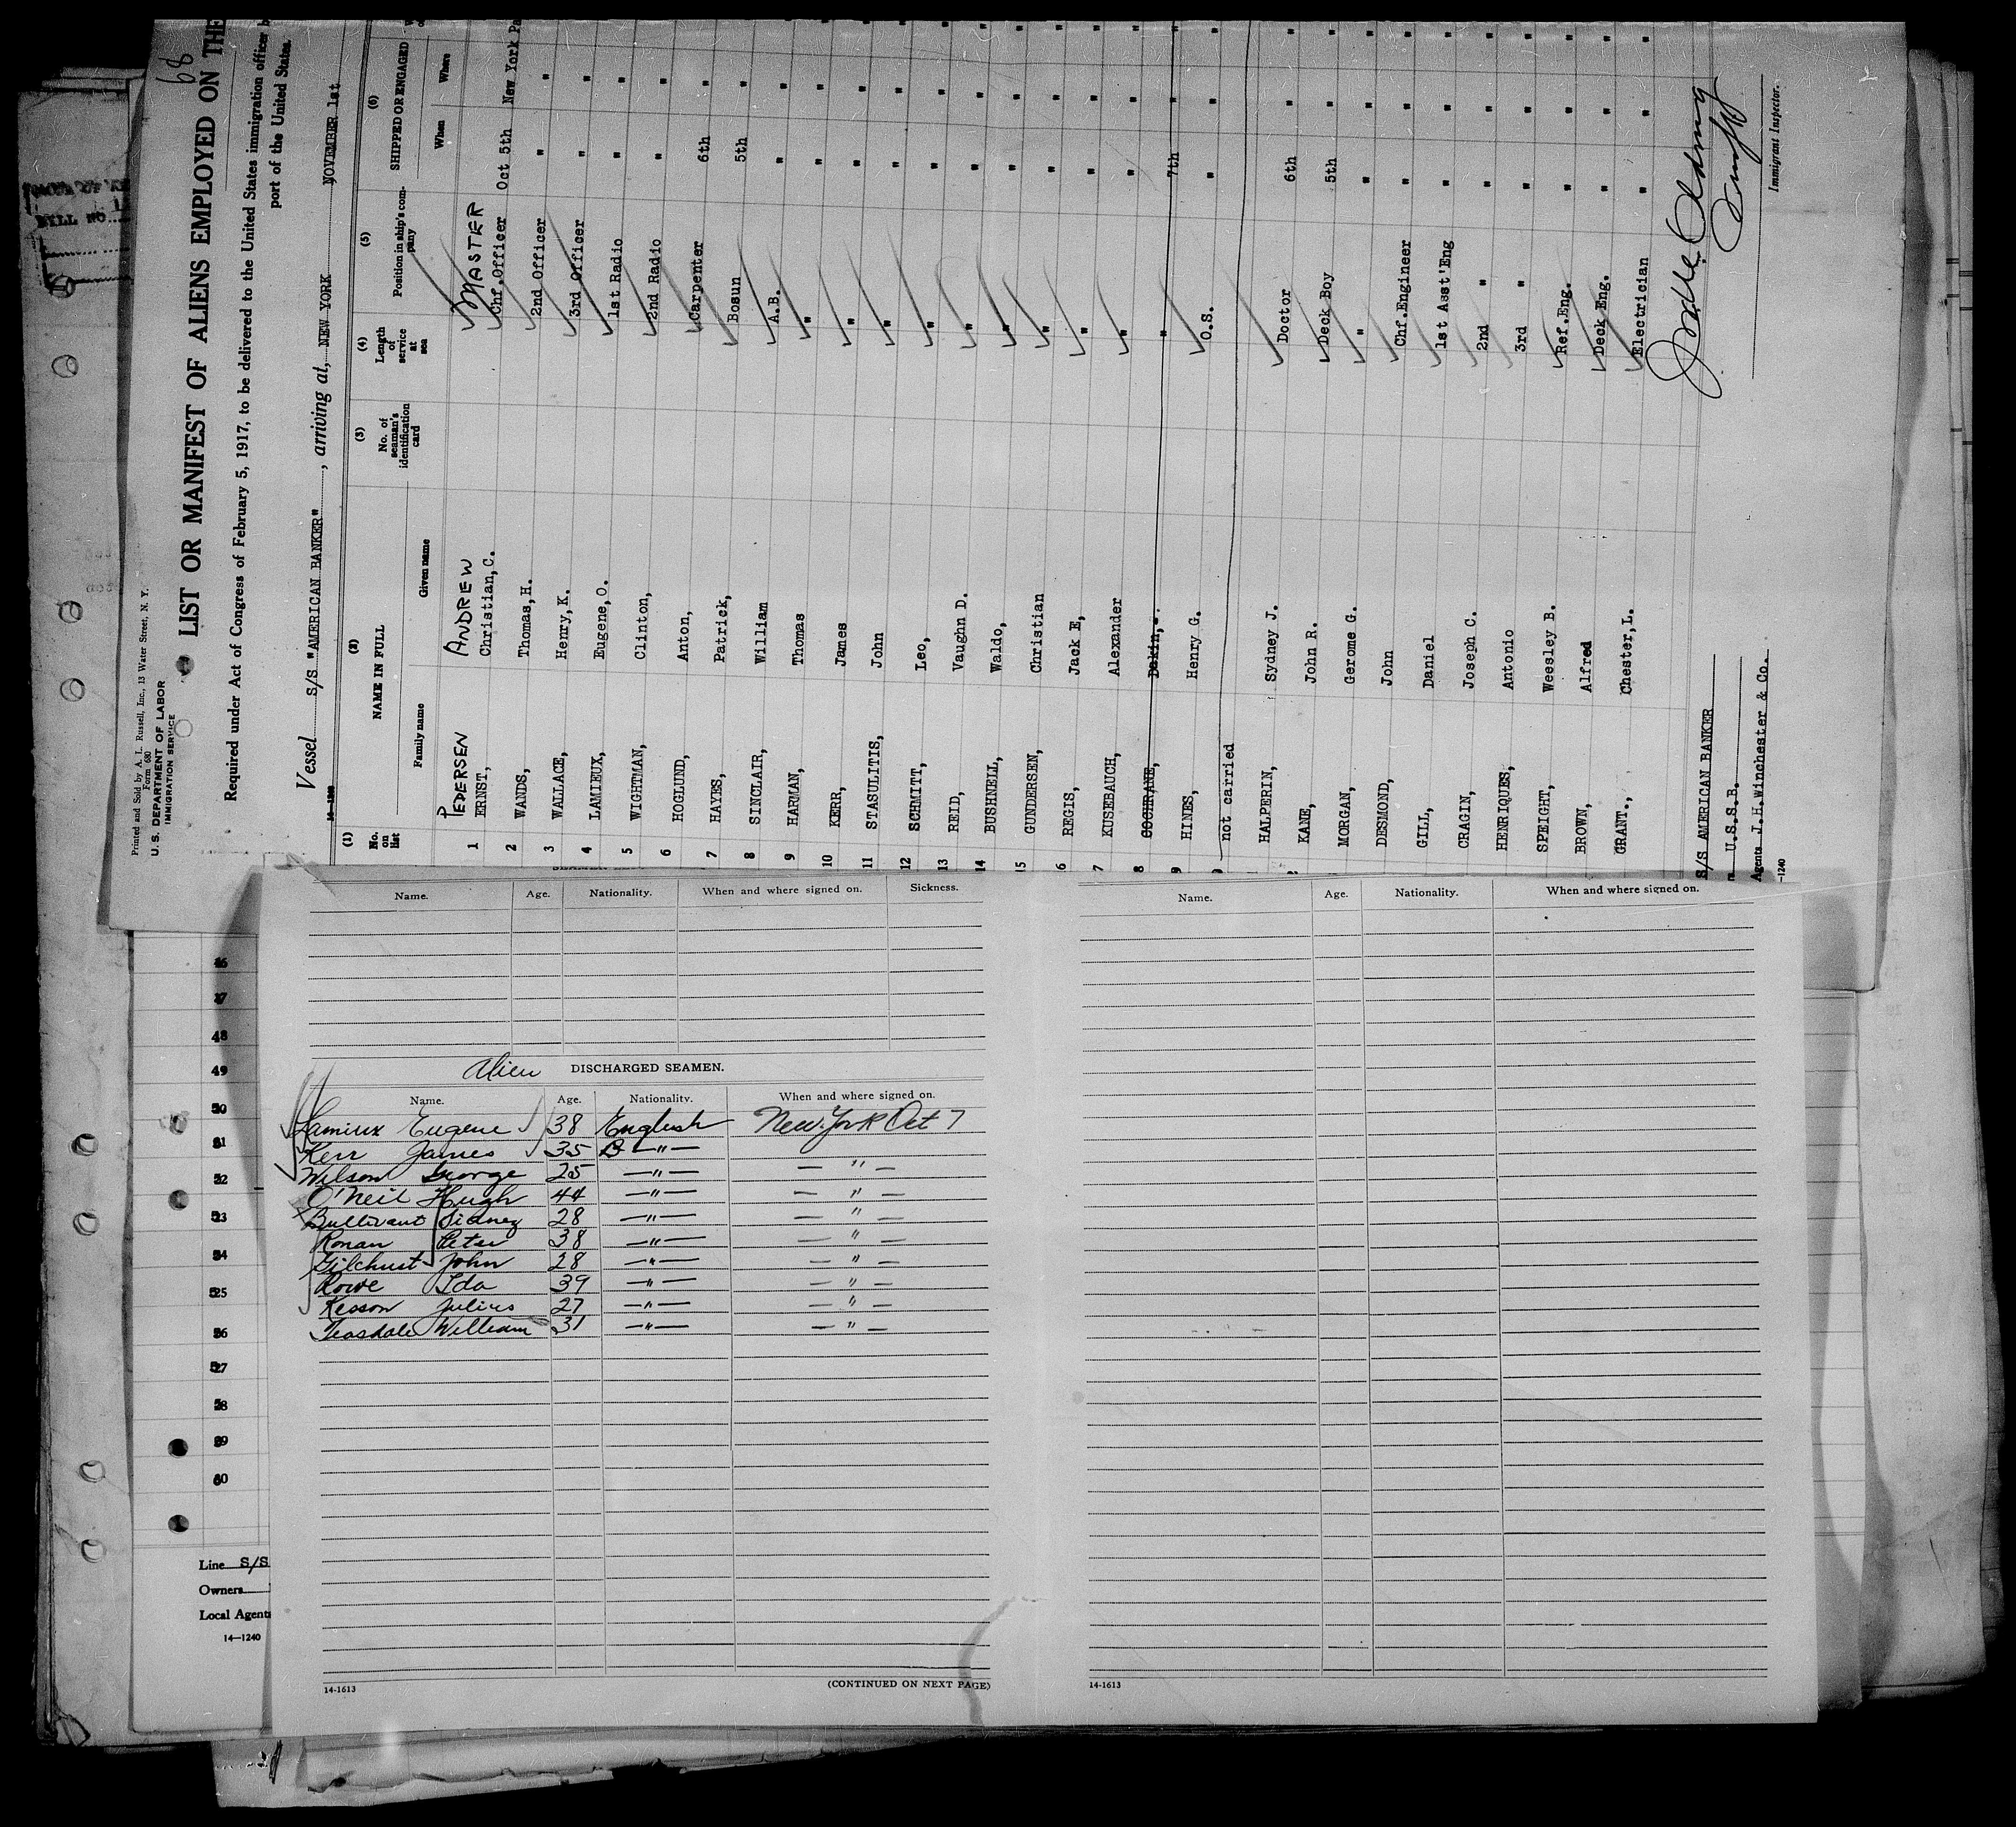 68
Printed and Sold by A. L. Russell, Inc., 13 Water Street, N. Y.
Form 680
U. S. DEPARTMENT OF LABOR
IMMIGRATION SERVICE
LIST OR MANIFEST OF ALIENS EMPLOYED ON THE
Required under Act of Congress of February 5, 1917, to be delivered to the United States immigration officer b
port of the United States.
Vessel S/S "AMERICAN BANKER", arriving at, NEW YORK NOVEMBER 1st
(1) (2) (3) (4) (5) (6)
No. on list NAME IN FULL No. of seaman's identification card Length of service at sea Position in ship's company SHIPPED OR ENGAGED
Family name Given name When Where
PEDERSEN ANDREW MASTER
1 ERNST, Christian, C. Chf. Officer Oct 5th New York Pa
2 WANDS, Thomas, H. 2nd Officer " "
3 WALLACE, Henry, K. 3rd Officer " "
4 LAMIEUX, Eugene, O. 1st Radio " "
5 WIGHTMAN, Clinton, 2nd Radio " "
6 HOGLUND, Anton, Carpenter 6th "
7 HAYES, Patrick, Bosun 5th "
8 SINCLAIR, William A.B. " "
9 HARMAN, Thomas " " "
10 KERR, James " " "
11 STASULITIS, John " " "
12 SCHMITT, Leo, " " "
13 REID, Vaughn D. " " "
14 BUSHNELL, Waldo, " " "
15 GUNDERSEN, Christian " " "
6 REGIS, Jack E, " " "
7 KUSEBAUCH, Alexander " " "
8 COCHRANE, Dakin, " 7th "
9 HINES, Henry G. O.S. " "
not carried
HALPERIN, Sydney J. Doctor 6th "
KANE, John R. Deck Boy 5th "
MORGAN, Gerome G. " " "
DESMOND, John Chf. Engineer " "
GILL, Daniel 1st Asst'Eng " "
CRAGIN, Joseph C. 2nd " " "
HENRIQUES, Antonio 3rd " " "
SPEIGHT, Weesley B. Ref. Eng. " "
BROWN, Alfred Deck Eng. " "
GRANT., Chester, L. Electrician " "
S/S AMERICAN BANKER
U.S.S.B.
Agents J.H.Winchester & Co.
-1240
Immigrant Inspector.
Name. Age. Nationality. When and where signed on. Sickness.
Alien DISCHARGED SEAMEN.
Name. Age. Nationality. When and where signed on.
Lamieux Eugene 38 English New York Oct 7
Kerr James 35 —"—
Wilson George 25 —"— — " —
O'Neil Hugh 44 —"— — " —
Bullivant Sidney 28 —"— — " —
Ronan Peter 38 —"— — " —
Gilchust John 28 —"— — " —
Rowe Ida 39 —"— — " —
Kesson Julius 27 —"— — " —
Teasdale William 31 —"— — " —
14-1613
(CONTINUED ON NEXT PAGE)
Name. Age. Nationality. When and where signed on.
14-1613
48
49
Line S/S
Owners
Local Agents
14—1240